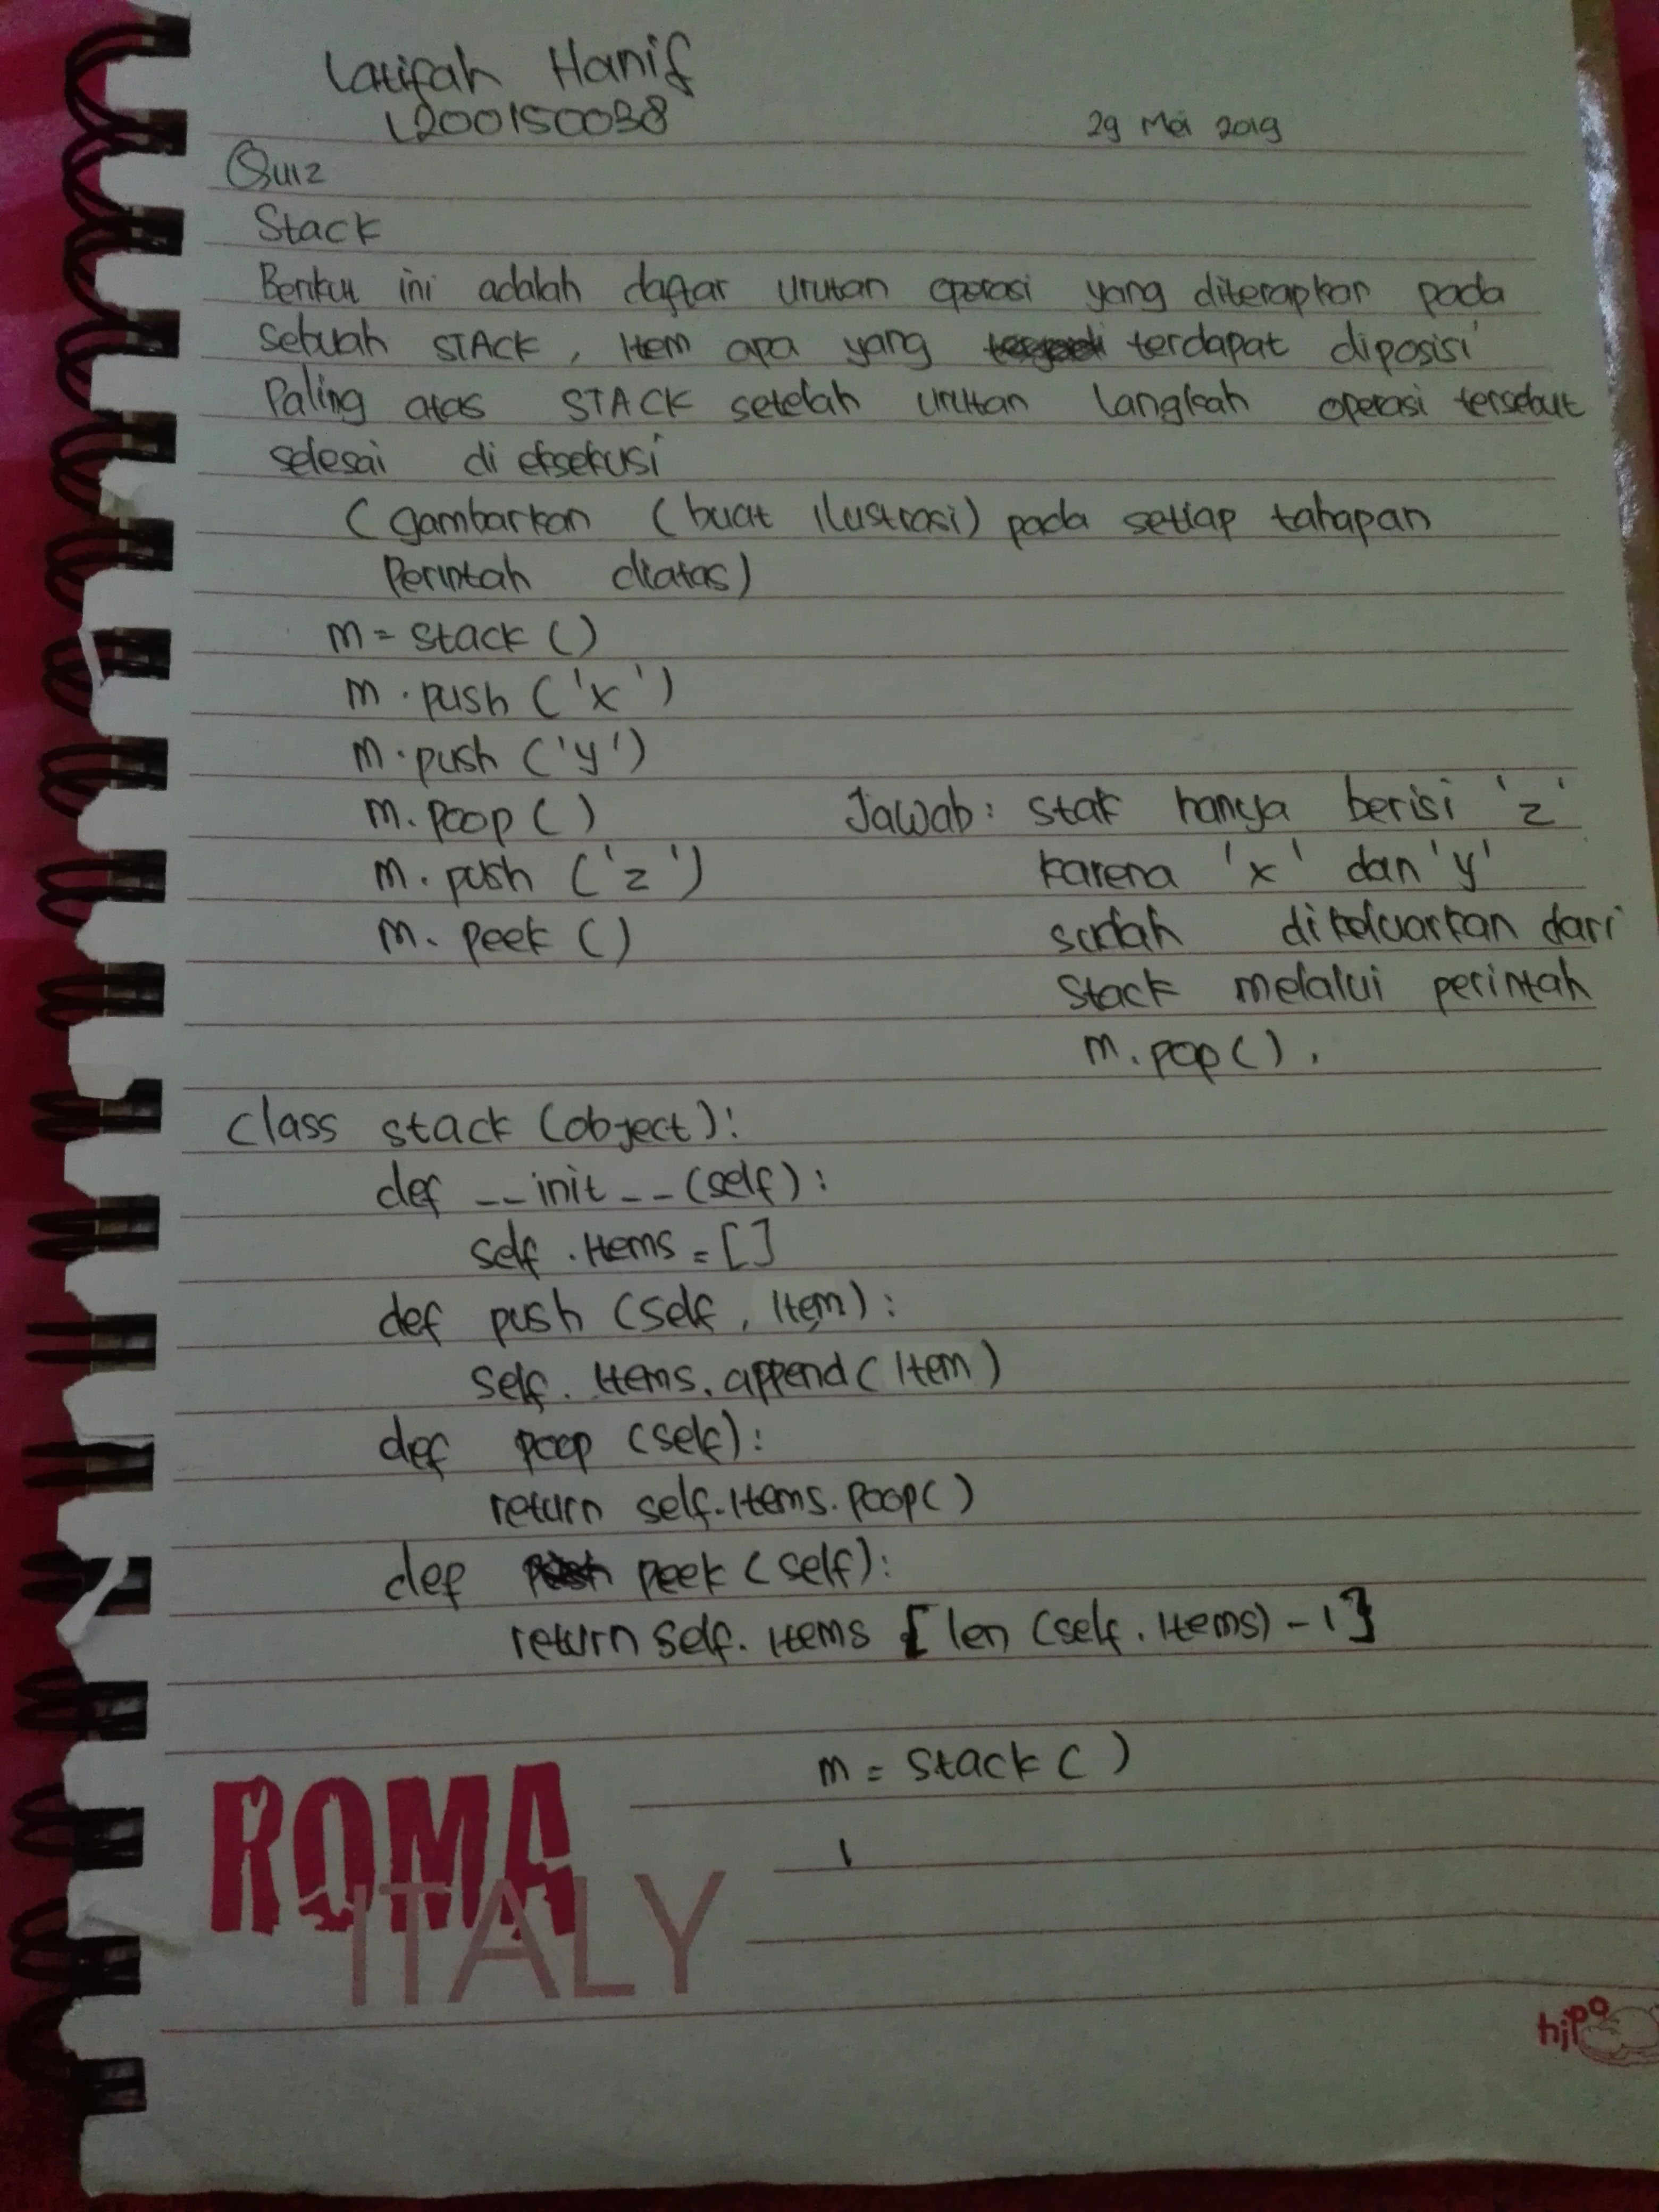 Latifah Hanif
L200150038
29 Mei 2019
Quiz
Stack
Berikut ini adalah daftar urutan operasi yang diterapkan pada
sebuah STACK, Item apa yang terdapat diposisi
Paling atas STACK setelah urutan langkah operasi tersebut
selesai di eksekusi
(gambarkan (buat ilustrasi) pada setiap tahapan
Perintah diatas)
m = stack ()
m.push ('x')
m.push ('y')
m.poop ()
m.push ('z')
m.peek ()
Jawab: stak hanya berisi 'z'
karena 'x' dan 'y'
sudah dikeluarkan dari
Stack melalui perintah
m.pop().
class stack (object):
def __init__(self):
self.Items = []
def push (self, Item):
self.Items.append(Item)
def poop (self):
return self.Items.poop()
def peek (self):
return self.Items [len (self.Items) -1]
m = Stack ()
ROMA
ITALY
hipo